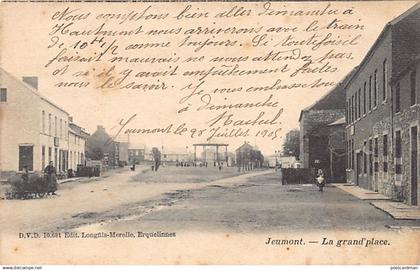 Nous comptons bien aller dimanche à
Hautmont nous arriverons avec le train
de 10 h 1/2 comme toujours. Si toutefois il
faisait mauvais ne nous attendez pas
et s'il y avait empêchement faites
nous le savoir. Mille bons
à dimanche
Rachel
Jeumont le 28 Juillet 1905
D.V.D. 10.601 Edit. Longfils-Merelle, Erquelinnes
Jeumont. — La grand'place.
https://www.delcampe.net
postcardman